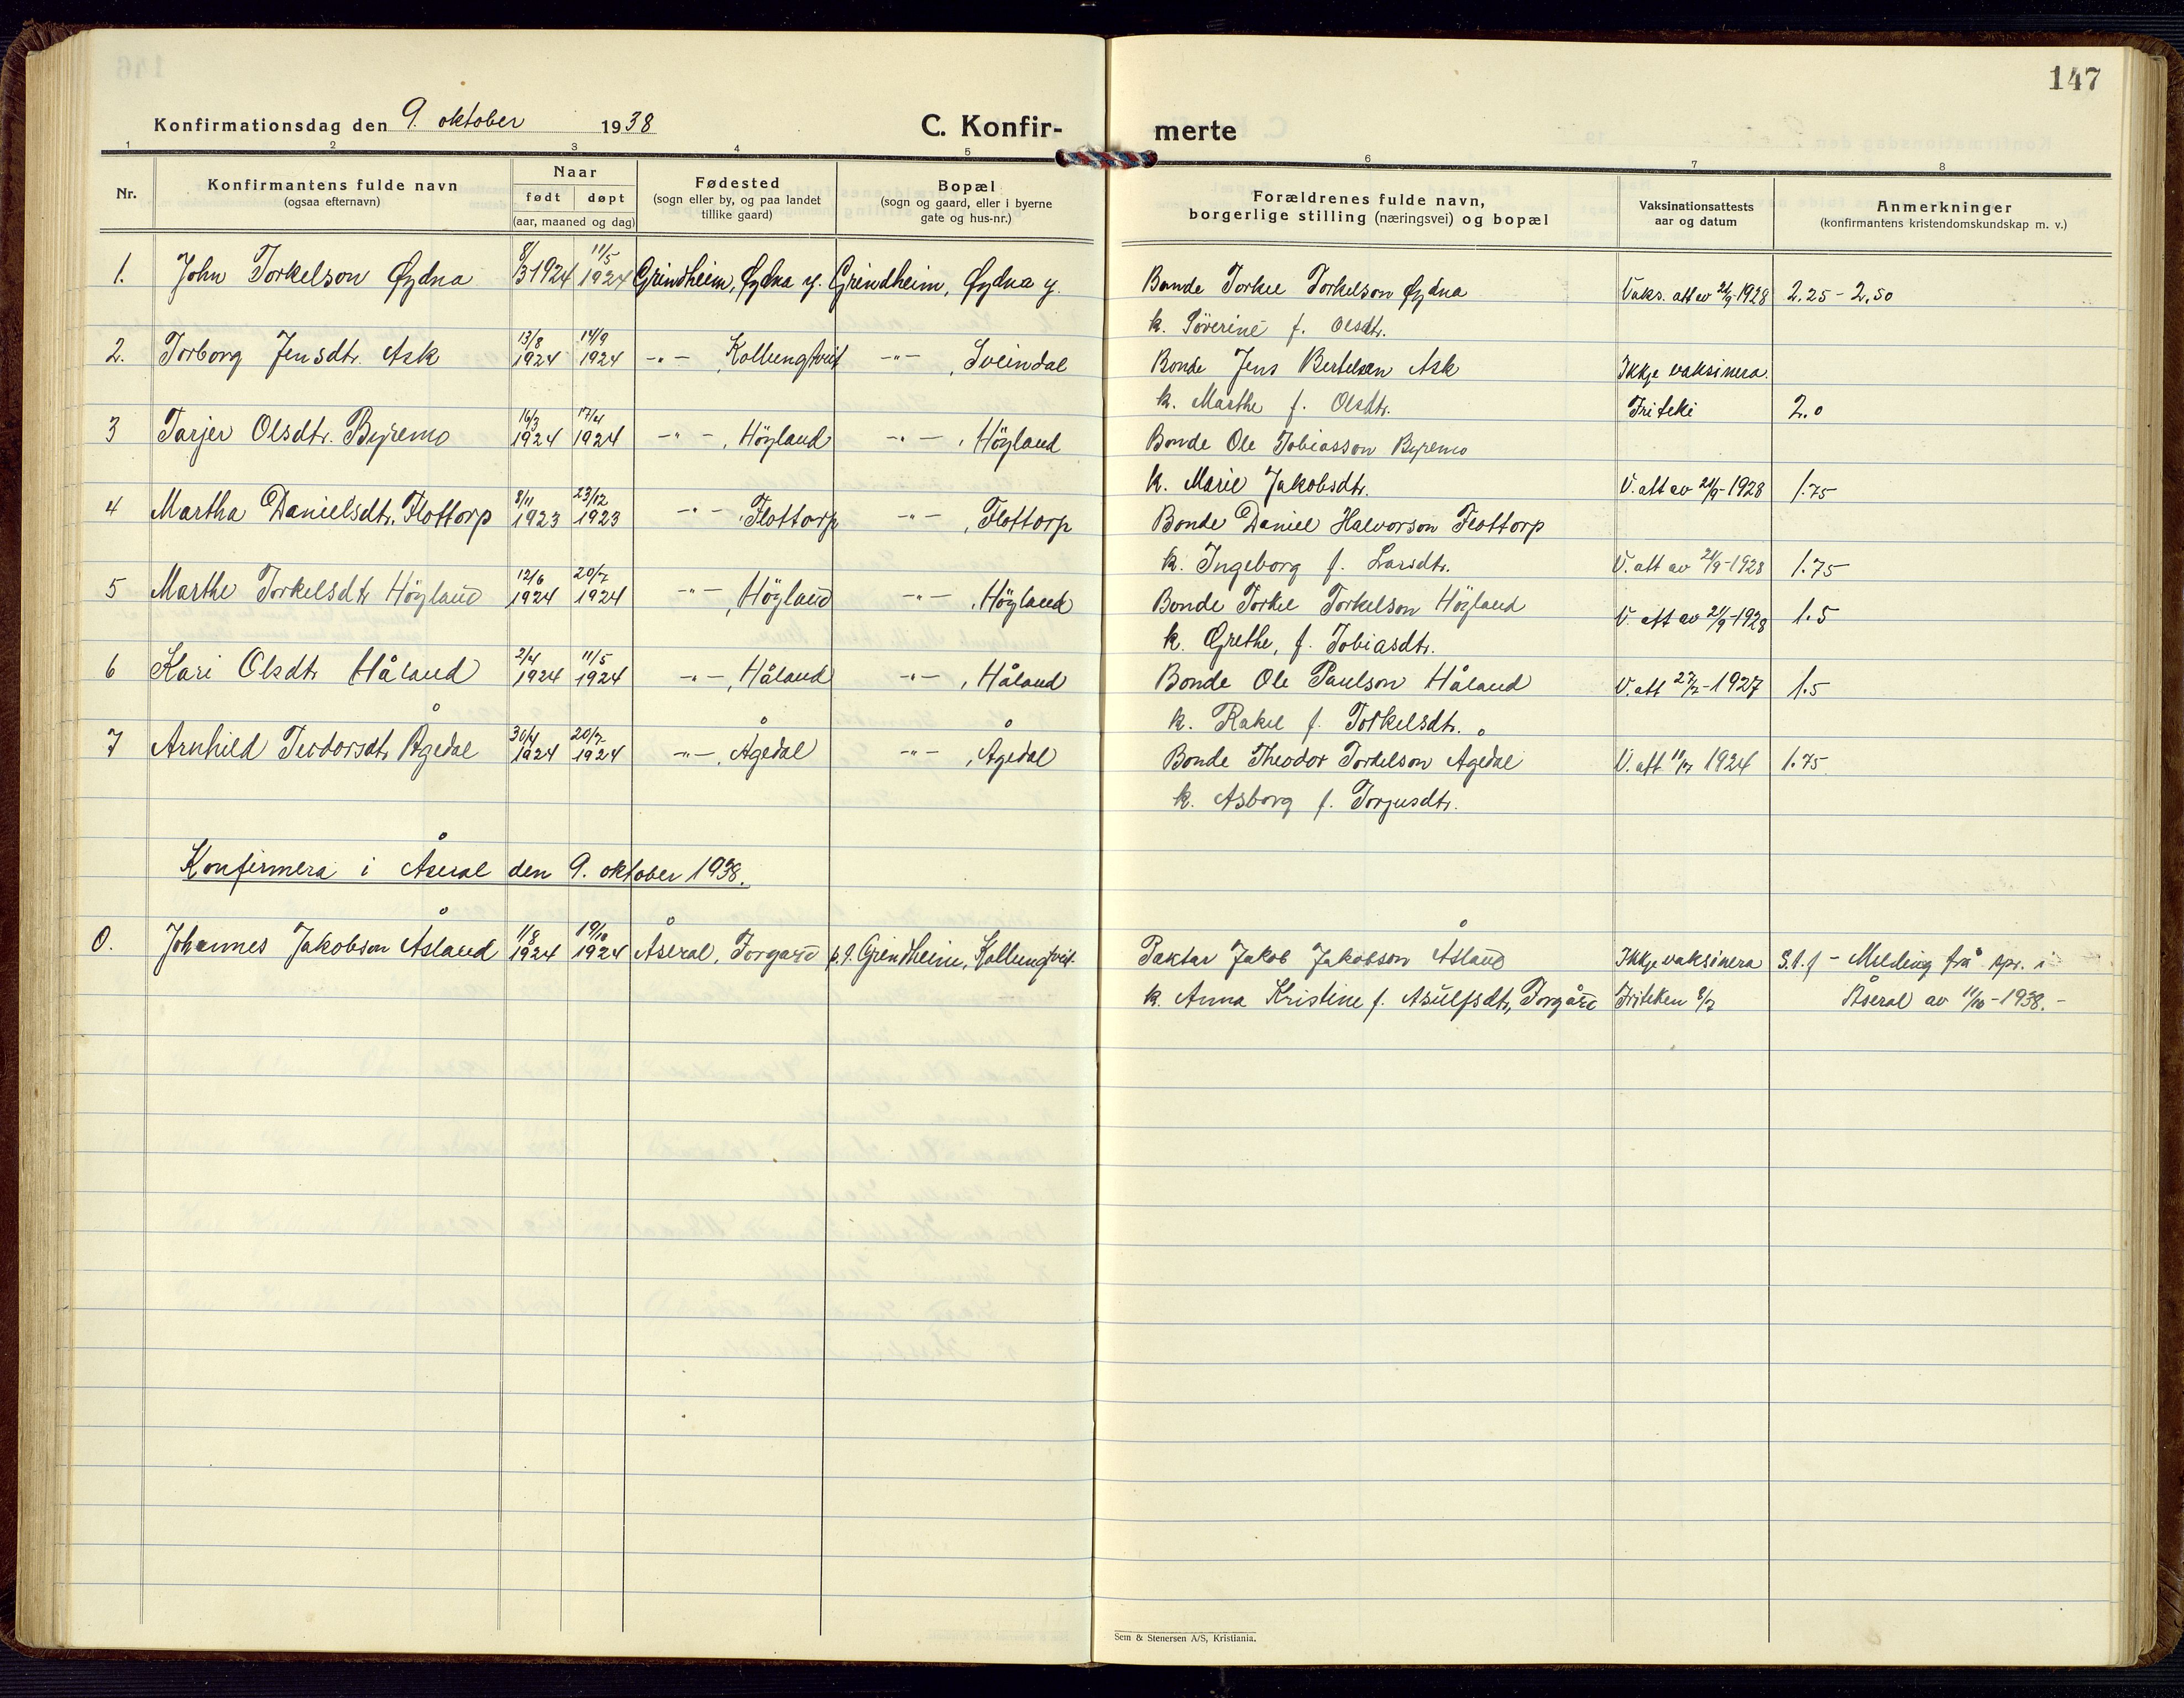 147
Konfirmationsdag den 9. oktober 1938 C. Konfir- merte
1 2 3 4 5 6 7 8
Nr. Konfirmantens fulde navn (ogsaa efternavn) Naar født døpt (aar, maaned og dag) Fødested (sogn eller by, og paa landet tillike gaard) Bopæl (sogn og gaard, eller i byerne gate og hus-nr.) Forældrenes fulde navn, borgerlige stilling (næringsvei) og bopæl Vaksinationsattests aar og datum Anmerkninger (konfirmantens kristendomskundskap m. v.)
1. John Torkelson Øydna 8/3 1924 11/5 1924 Grindheim, Øydna y. Grindheim, Øydna y. Bonde Torkel Torkelson Øydna Vaks. att av 21/9-1928 2,25 - 2,50
k. Söverine f. Olsdtr.
2. Torborg Jensdtr. Ask 13/8 1924 14/9 1924 -"- , Kollungtveit -"- , Sveindal Bonde Jens Bertelsen Ask Ikkje vaksinera.
k. Marthe f. Olsdtr. Friteki 2.0
3 Tarjer Olsdtr. Byremo 16/3 1924 17/4 1924 -"- , Höyland -"- , Höyland Bonde Ole Tobiasson Byremo
k. Marie Jakobsdtr. V. att av 21/9-1928 1.75
4 Martha Danielsdtr. Flottorp 8/11 1923 23/12 1923 -"- , Flottorp -"- , Flottorp Bonde Daniel Halvorson Flottorp
k. Ingeborg f. Larsdtr. V. att av 21/9-1928 1.75
5 Marthe Torkelsdtr Höyland 12/6 1924 20/7 1924 -"- , Höyland -"- , Höyland Bonde Torkel Torkelson Höyland V. att av 21/9-1928 1.5
k. Grethe, f. Tobiasdtr.
6 Kari Olsdtr Håland 2/4 1924 11/5 1924 -"- , Håland -"- , Håland Bonde Ole Paulson Håland V. att 27/7-1927 1.5
k. Rakel f. Torkelsdtr.
7 Arnhild Teodorsdtr. Ågedal 30/4 1924 20/7 1924 -"- , Ågedal -"- , Ågedal Bonde Theodor Torkelson Ågedal V. att 11/7 1924 1.75
k. Asborg f. Torjusdtr.
Konfirmera i Åseral den 9. oktober 1938.
0. Johannes Jakobson Åsland 11/8 1924 19/10 1924 Åseral, Torgard p.t. Grindheim, Kollungtveit. Paktar Jakob Jakobson Åsland Ikkje vaksinera S.t.f - Melding frå spr. i
k. Anna Kristine f. Asulfsdtr, Torgård Friteken 8/7 Åseral av 11/10-1938. -
Sem & Stenersen A/S, Kristiania.